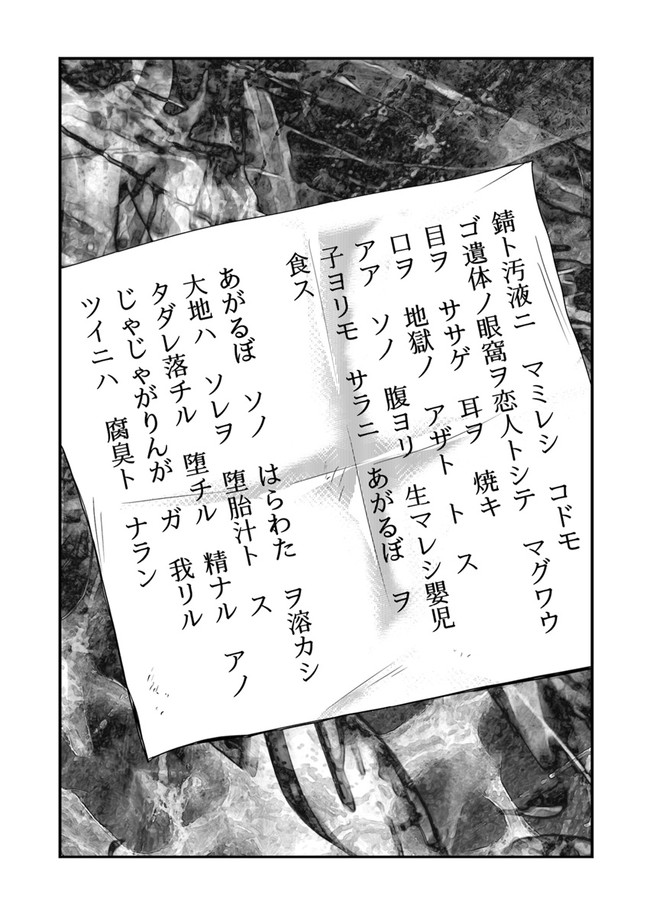 錆ト汚液ニ マミレシ コドモ
ゴ遺体ノ眼窩ヲ恋人トシテ マグワウ
目ヲ ササゲ 耳ヲ 焼キ
口ヲ 地獄ノ アザト ト ス
アア ソノ 腹ヨリ 生マレシ嬰児
子ヨリモ サラニ あがるぼ ヲ
食ス
あがるぼ ソノ はらわた ヲ溶カシ
大地ハ ソレヲ 堕胎汁ト ス
タダレ落チル 堕チル 精ナル アノ
じゃじゃがりんが ガ 我リル
ツイニハ 腐臭ト ナラン